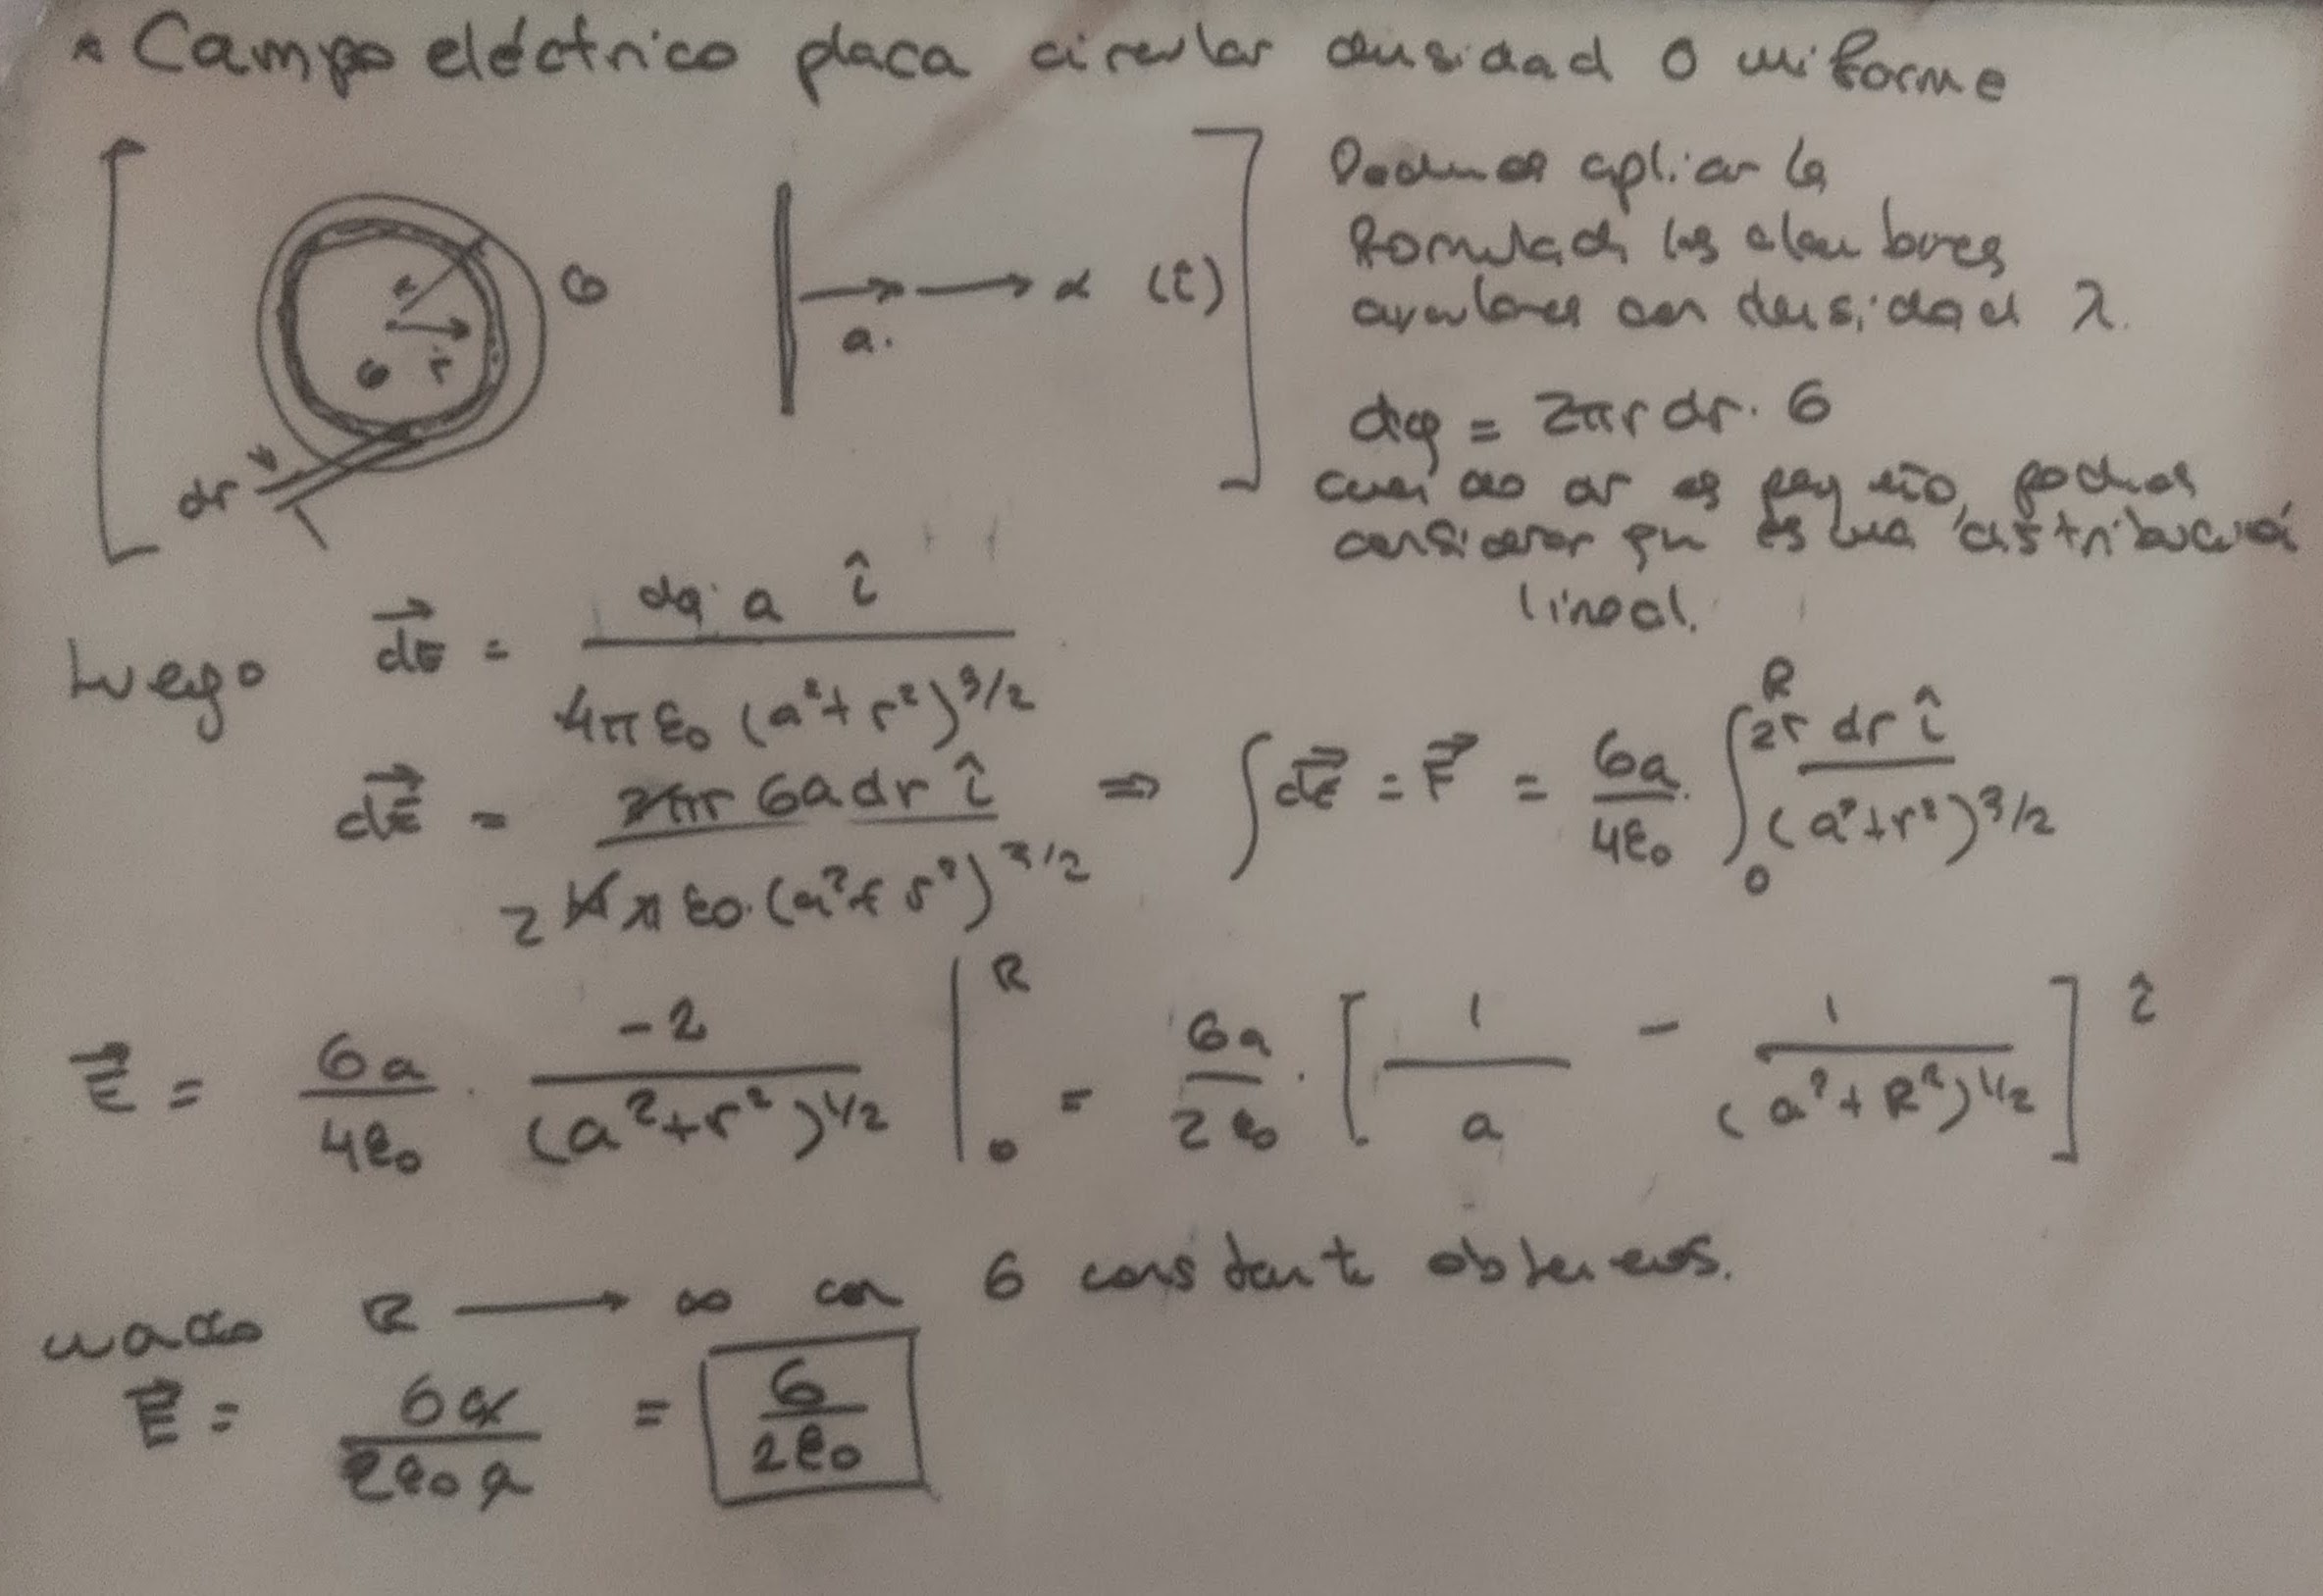 * Campo eléctrico placa circular densidad σ uniforme
Podemos aplicar la
formula de los alambres
circulares con densidad λ.
r
σ
r
σ
a.
α (î)
dr
dq = 2πr dr · σ
cuando dr es pequeño, podemos
considerar que es una distribución
lineal.
Luego dE⃗ = dq a î / 4πε₀ (a²+r²)^3/2
dE⃗ = 2πr σ a dr î / 2 4π ε₀·(a²+r²)^3/2 ⇒ ∫dE⃗ = E⃗ = σa/4ε₀ · ∫₀^R 2r dr î / (a²+r²)^3/2
E⃗ = σa/4ε₀ · -2/(a²+r²)^1/2 |₀^R = σa/2ε₀ · [ 1/a - 1/(a²+R²)^1/2 ] î
cuando R ⟶ ∞ con σ constante obtenemos.
E⃗ = σa/2ε₀a = σ/2ε₀